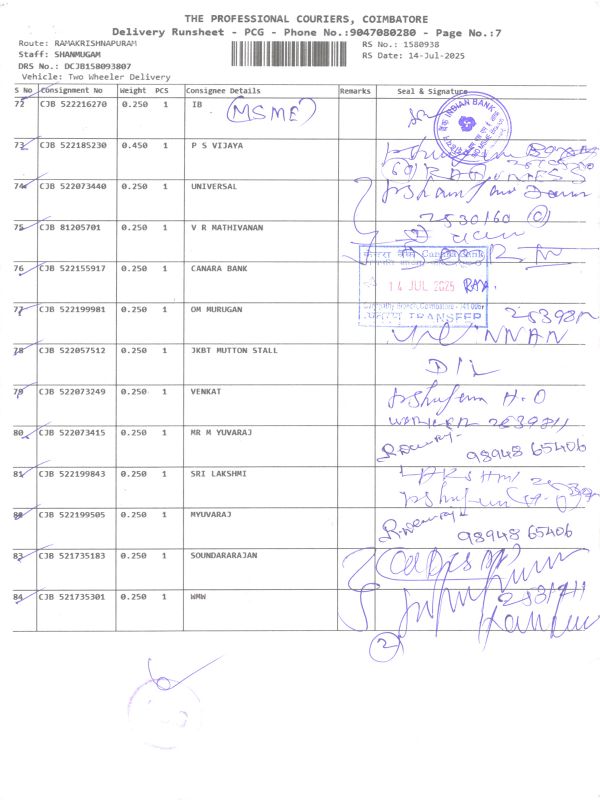 THE PROFESSIONAL COURIERS, COIMBATORE
Delivery Runsheet - PCG - Phone No.:9047080280 - Page No.:7
Route: RAMAKRISHNAPURAM
Staff: SHANMUGAM
DRS No.: DCJB158093807
Vehicle: Two Wheeler Delivery
RS No.: 1580938
RS Date: 14-Jul-2025
S No Consignment No Weight PCS Consignee Details Remarks Seal & Signature
72 CJB 522216270 0.250 1 IB (MSME) INDIAN BANK
73 CJB 522185230 0.450 1 P S VIJAYA
74 CJB 522073440 0.250 1 UNIVERSAL
2530160
75 CJB 81205701 0.250 1 V R MATHIVANAN
Canara Bank
76 CJB 522155917 0.250 1 CANARA BANK 14 JUL 2025
77 CJB 522199981 0.250 1 OM MURUGAN TRANSFER
78 CJB 522057512 0.250 1 JKBT MUTTON STALL
79 CJB 522073249 0.250 1 VENKAT H.O
80 CJB 522073415 0.250 1 MR M YUVARAJ 98948 65406
81 CJB 522199843 0.250 1 SRI LAKSHMI
82 CJB 522199505 0.250 1 MYUVARAJ 98948 65406
83 CJB 521735183 0.250 1 SOUNDARARAJAN
84 CJB 521735301 0.250 1 WMW
2